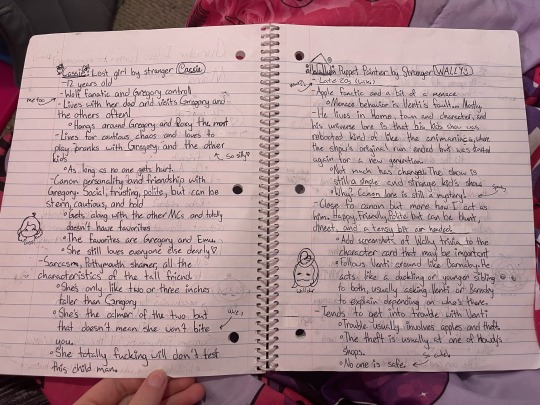 Cassie: Lost girl by stranger (Cassie)
- 12 years old
me too
- Wolf fanatic and Gregory control
- Lives with her dad and visits Gregory and
the others often!
Hangs around Gregory and Roxy the most
- Lives for cautious chaos and loves to
play pranks with Gregory and the other
kids
so silly!
As long as no one gets hurt.
- Canon personality and friendship with
Gregory. Social, trusting, polite, but can be
stern, cautious, and bold
Gets along with the other MCs and totally
doesn't have favorites
The favorites are Gregory and Emu.
She still loves everyone else dearly
- Sarcasm, Pottymouth shamer, all the
characteristics of the tall friend
She's only like two or three inches
taller than Gregory
She's the calmer of the two but
that doesn't mean she won't bite
you.
She totally fucking will don't test
this child man.
Puppet Painter by Stranger (WALLY)
- Late 20s
- Apple fanatic and a bit of a menace
Menace behavior is Venti's fault... Mostly
- He lives in Home, town and character, and
his universe lore is that his kids show was
rebooted kind of like the animaniacs, where
the show's original run ended but was started
again for a new generation.
Not much has changed. The show is
still a single and strange kid's show
Wally Canon lore is still a mystery!
- Close to canon but more how I act as
him. Happy, Friendly, Polite but can be blunt,
direct, and a tensy bit air headed.
Add screenshots of Wally trivia to the
character card that may be important
Follows Venti around like Barnaby. He
acts like a duckling or younger sibling
to both, usually asking Venti or Barnaby
to explain depending on who's there.
- Tends to get into trouble with Venti
Trouble usually involves apples and theft.
The theft is usually at one of Howdy's
shops.
No one is safe.